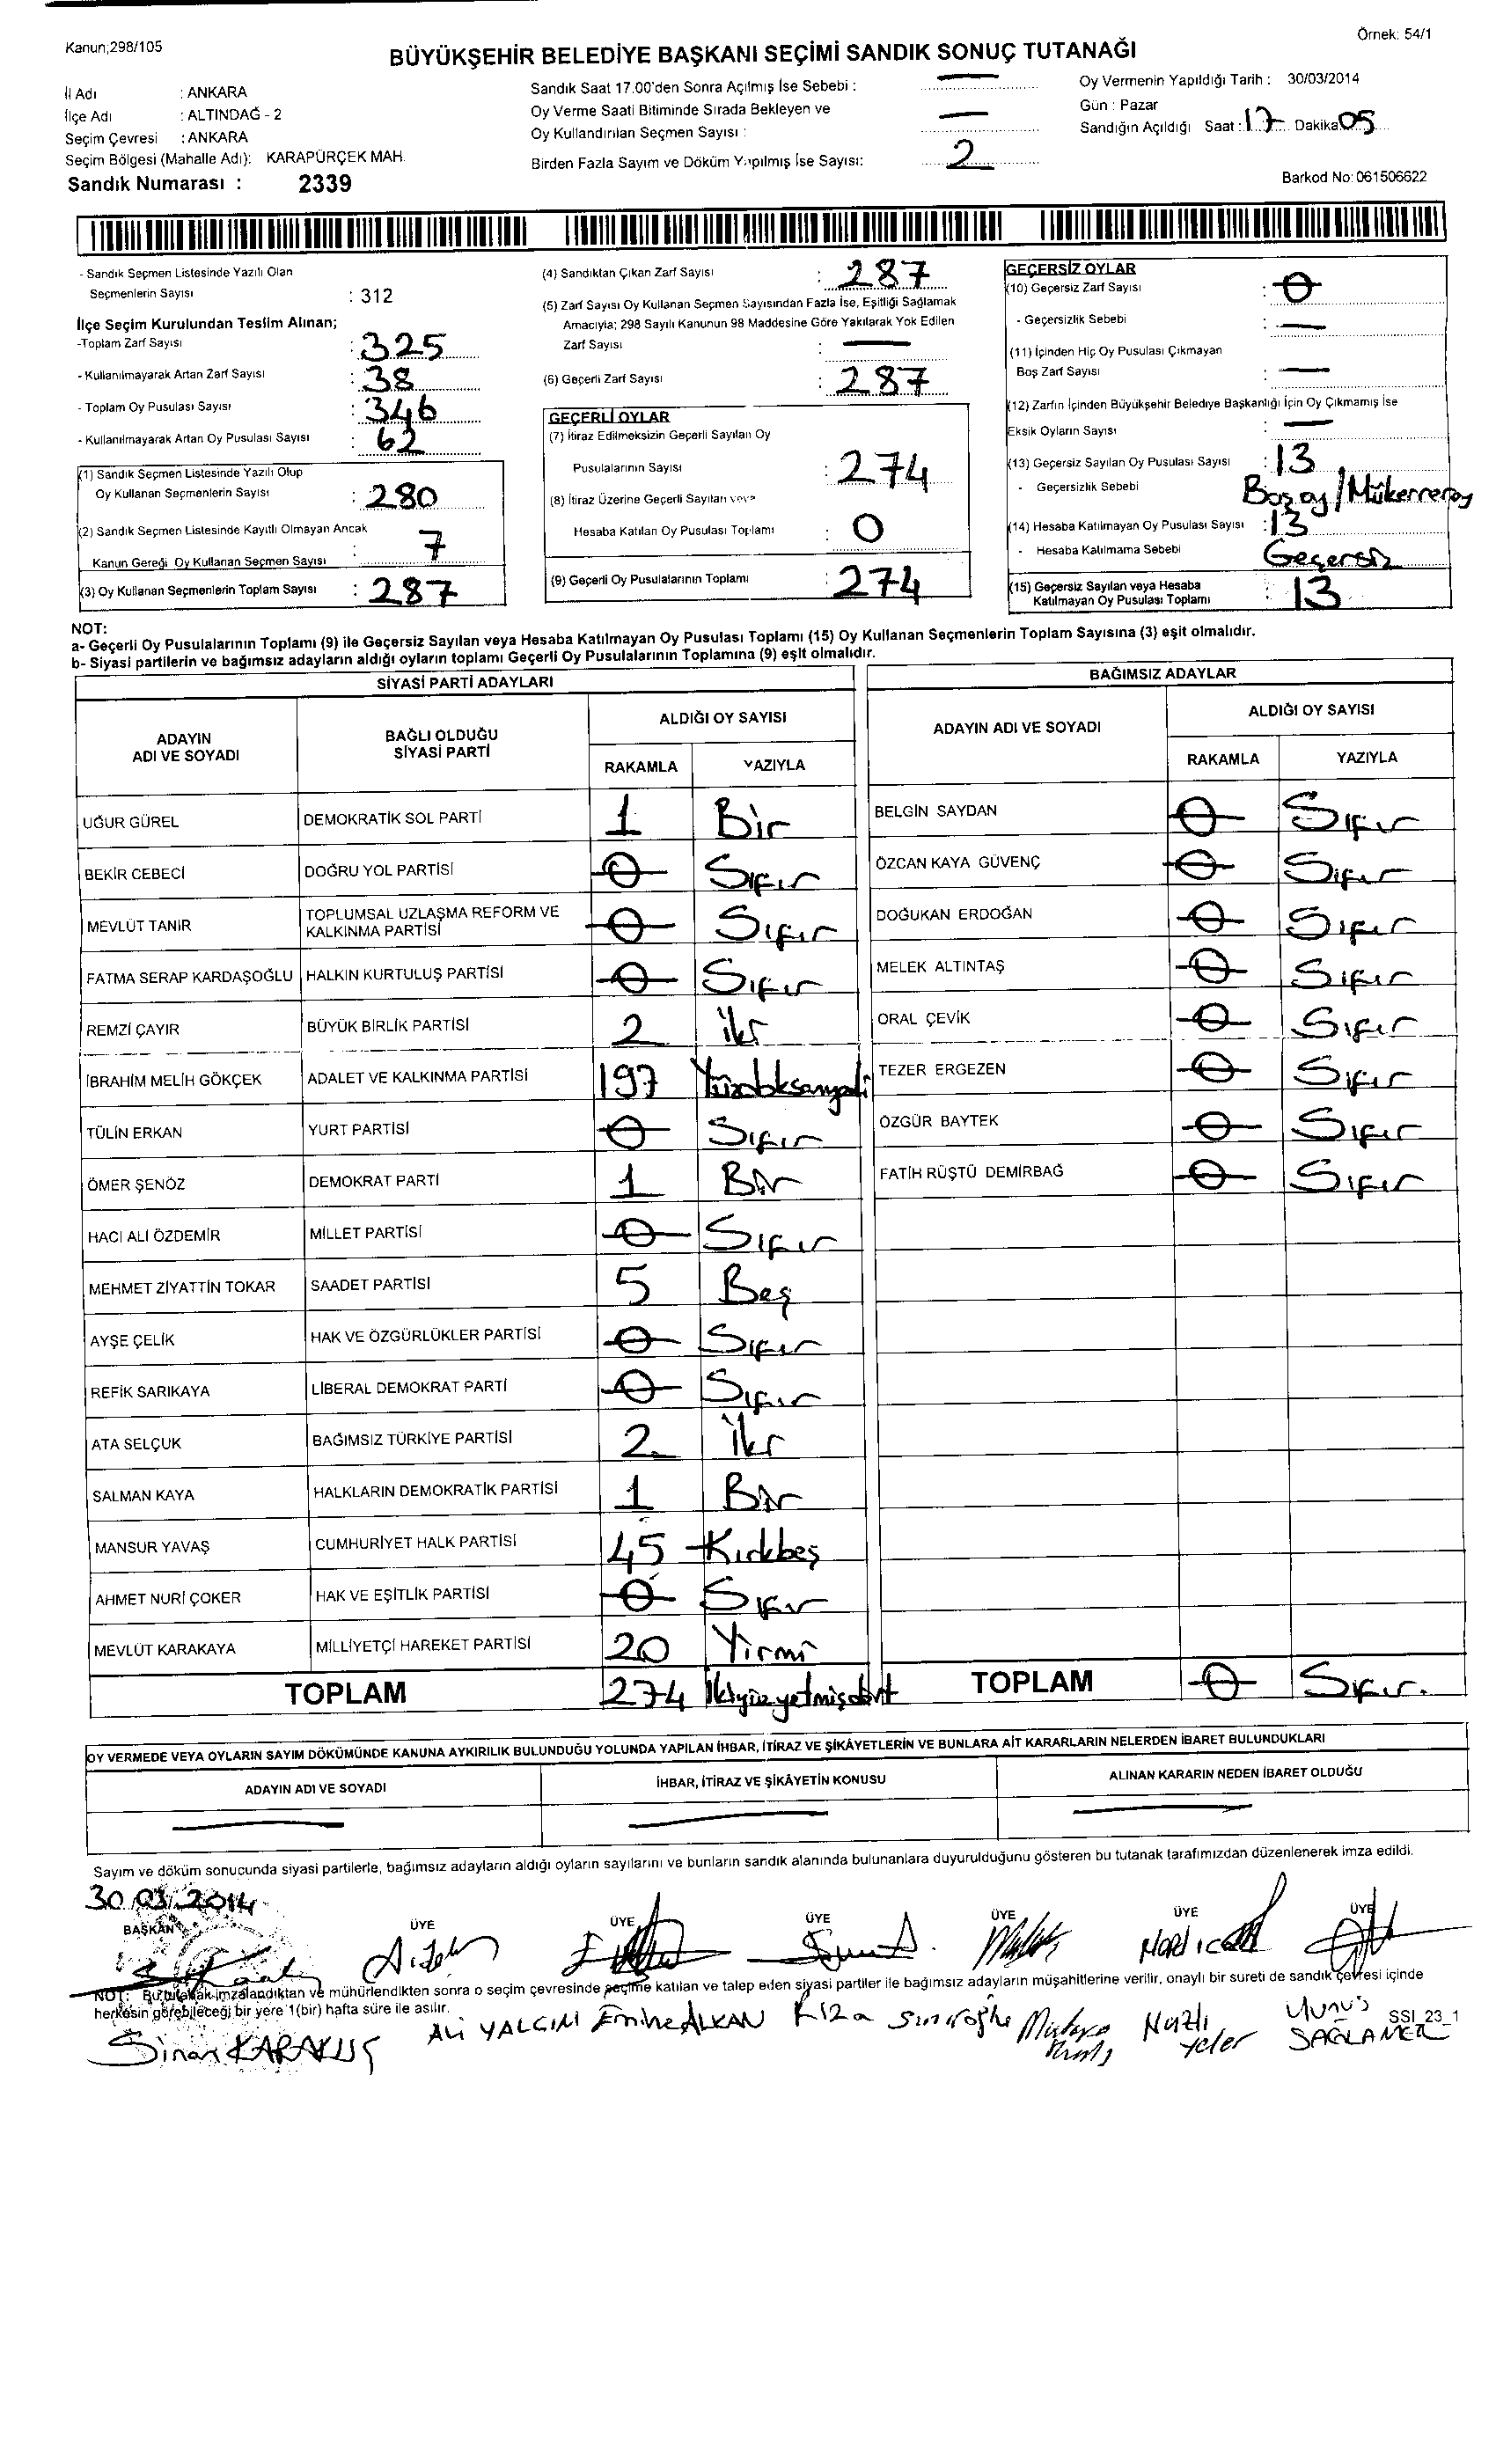 Kanun;298/105
Örnek: 54/1
BÜYÜKŞEHİR BELEDİYE BAŞKANI SEÇİMİ SANDIK SONUÇ TUTANAĞI
İl Adı : ANKARA
İlçe Adı : ALTINDAĞ - 2
Seçim Çevresi : ANKARA
Seçim Bölgesi (Mahalle Adı): KARAPÜRÇEK MAH.
Sandık Numarası : 2339
Sandık Saat 17.00'den Sonra Açılmış İse Sebebi : —
Oy Verme Saati Bitiminde Sırada Bekleyen ve
Oy Kullandırılan Seçmen Sayısı : —
Birden Fazla Sayım ve Döküm Yapılmış İse Sayısı: 2
Oy Vermenin Yapıldığı Tarih : 30/03/2014
Gün : Pazar
Sandığın Açıldığı Saat : 17 Dakika 05
Barkod No: 061506622
- Sandık Seçmen Listesinde Yazılı Olan
Seçmenlerin Sayısı : 312
İlçe Seçim Kurulundan Teslim Alınan;
-Toplam Zarf Sayısı : 325
- Kullanılmayarak Artan Zarf Sayısı : 38
- Toplam Oy Pusulası Sayısı : 346
- Kullanılmayarak Artan Oy Pusulası Sayısı : 62
(1) Sandık Seçmen Listesinde Yazılı Olup
Oy Kullanan Seçmenlerin Sayısı : 280
(2) Sandık Seçmen Listesinde Kayıtlı Olmayan Ancak
Kanun Gereği Oy Kullanan Seçmen Sayısı : 7
(3) Oy Kullanan Seçmenlerin Toplam Sayısı : 287
(4) Sandıktan Çıkan Zarf Sayısı : 287
(5) Zarf Sayısı Oy Kullanan Seçmen Sayısından Fazla İse, Eşitliği Sağlamak
Amacıyla; 298 Sayılı Kanunun 98 Maddesine Göre Yakılarak Yok Edilen
Zarf Sayısı : —
(6) Geçerli Zarf Sayısı : 287
GEÇERLİ OYLAR
(7) İtiraz Edilmeksizin Geçerli Sayılan Oy
Pusulalarının Sayısı : 274
(8) İtiraz Üzerine Geçerli Sayılan veya
Hesaba Katılan Oy Pusulası Toplamı : 0
(9) Geçerli Oy Pusulalarının Toplamı : 274
GEÇERSİZ OYLAR
(10) Geçersiz Zarf Sayısı : 0
- Geçersizlik Sebebi : —
(11) İçinden Hiç Oy Pusulası Çıkmayan
Boş Zarf Sayısı : —
(12) Zarfın İçinden Büyükşehir Belediye Başkanlığı İçin Oy Çıkmamış İse
Eksik Oyların Sayısı : —
(13) Geçersiz Sayılan Oy Pusulası Sayısı : 13
- Geçersizlik Sebebi Boş oy/Mükerrer oy
(14) Hesaba Katılmayan Oy Pusulası Sayısı : 13
- Hesaba Katılmama Sebebi Geçersiz
(15) Geçersiz Sayılan veya Hesaba
Katılmayan Oy Pusulası Toplamı : 13
NOT:
a- Geçerli Oy Pusulalarının Toplamı (9) ile Geçersiz Sayılan veya Hesaba Katılmayan Oy Pusulası Toplamı (15) Oy Kullanan Seçmenlerin Toplam Sayısına (3) eşit olmalıdır.
b- Siyasi partilerin ve bağımsız adayların aldığı oyların toplamı Geçerli Oy Pusulalarının Toplamına (9) eşit olmalıdır.
SİYASİ PARTİ ADAYLARI
ADAYIN ADI VE SOYADI BAĞLI OLDUĞU SİYASİ PARTİ ALDIĞI OY SAYISI
RAKAMLA YAZIYLA
UĞUR GÜREL DEMOKRATİK SOL PARTİ 1 Bir
BEKİR CEBECİ DOĞRU YOL PARTİSİ 0 Sıfır
MEVLÜT TANIR TOPLUMSAL UZLAŞMA REFORM VE KALKINMA PARTİSİ 0 Sıfır
FATMA SERAP KARDAŞOĞLU HALKIN KURTULUŞ PARTİSİ 0 Sıfır
REMZİ ÇAYIR BÜYÜK BİRLİK PARTİSİ 2 iki
İBRAHİM MELİH GÖKÇEK ADALET VE KALKINMA PARTİSİ 197 Yüzdoksanyedi
TÜLİN ERKAN YURT PARTİSİ 0 Sıfır
ÖMER ŞENÖZ DEMOKRAT PARTİ 1 Bir
HACI ALİ ÖZDEMİR MİLLET PARTİSİ 0 Sıfır
MEHMET ZİYATTİN TOKAR SAADET PARTİSİ 5 Beş
AYŞE ÇELİK HAK VE ÖZGÜRLÜKLER PARTİSİ 0 Sıfır
REFİK SARIKAYA LİBERAL DEMOKRAT PARTİ 0 Sıfır
ATA SELÇUK BAĞIMSIZ TÜRKİYE PARTİSİ 2 iki
SALMAN KAYA HALKLARIN DEMOKRATİK PARTİSİ 1 Bir
MANSUR YAVAŞ CUMHURİYET HALK PARTİSİ 45 Kırkbeş
AHMET NURİ ÇOKER HAK VE EŞİTLİK PARTİSİ 0 Sıfır
MEVLÜT KARAKAYA MİLLİYETÇİ HAREKET PARTİSİ 20 Yirmi
TOPLAM 274 İkiyüzyetmişdört
BAĞIMSIZ ADAYLAR
ADAYIN ADI VE SOYADI ALDIĞI OY SAYISI
RAKAMLA YAZIYLA
BELGİN SAYDAN 0 Sıfır
ÖZCAN KAYA GÜVENÇ 0 Sıfır
DOĞUKAN ERDOĞAN 0 Sıfır
MELEK ALTINTAŞ 0 Sıfır
ORAL ÇEVİK 0 Sıfır
TEZER ERGEZEN 0 Sıfır
ÖZGÜR BAYTEK 0 Sıfır
FATİH RÜŞTÜ DEMİRBAĞ 0 Sıfır
TOPLAM 0 Sıfır.
OY VERMEDE VEYA OYLARIN SAYIM DÖKÜMÜNDE KANUNA AYKIRILIK BULUNDUĞU YOLUNDA YAPILAN İHBAR, İTİRAZ VE ŞİKÂYETLERİN VE BUNLARA AİT KARARLARIN NELERDEN İBARET BULUNDUKLARI
ADAYIN ADI VE SOYADI İHBAR, İTİRAZ VE ŞİKÂYETİN KONUSU ALINAN KARARIN NEDEN İBARET OLDUĞU
— — —
Sayım ve döküm sonucunda siyasi partilerle, bağımsız adayların aldığı oyların sayılarını ve bunların sandık alanında bulunanlara duyurulduğunu gösteren bu tutanak tarafımızdan düzenlenerek imza edildi.
30.03.2014
BAŞKAN ÜYE ÜYE ÜYE ÜYE ÜYE ÜYE
NOT: Bu tutanak imzalandıktan ve mühürlendikten sonra o seçim çevresinde seçime katılan ve talep eden siyasi partiler ile bağımsız adayların müşahitlerine verilir, onaylı bir sureti de sandık çevresi içinde
herkesin görebileceği bir yere 1(bir) hafta süre ile asılır.
SSI_23_1
Sinan KARAKUŞ ALİ YALÇIN Emine ALKAN Rıza Nazlı Yunus SAĞLAMER